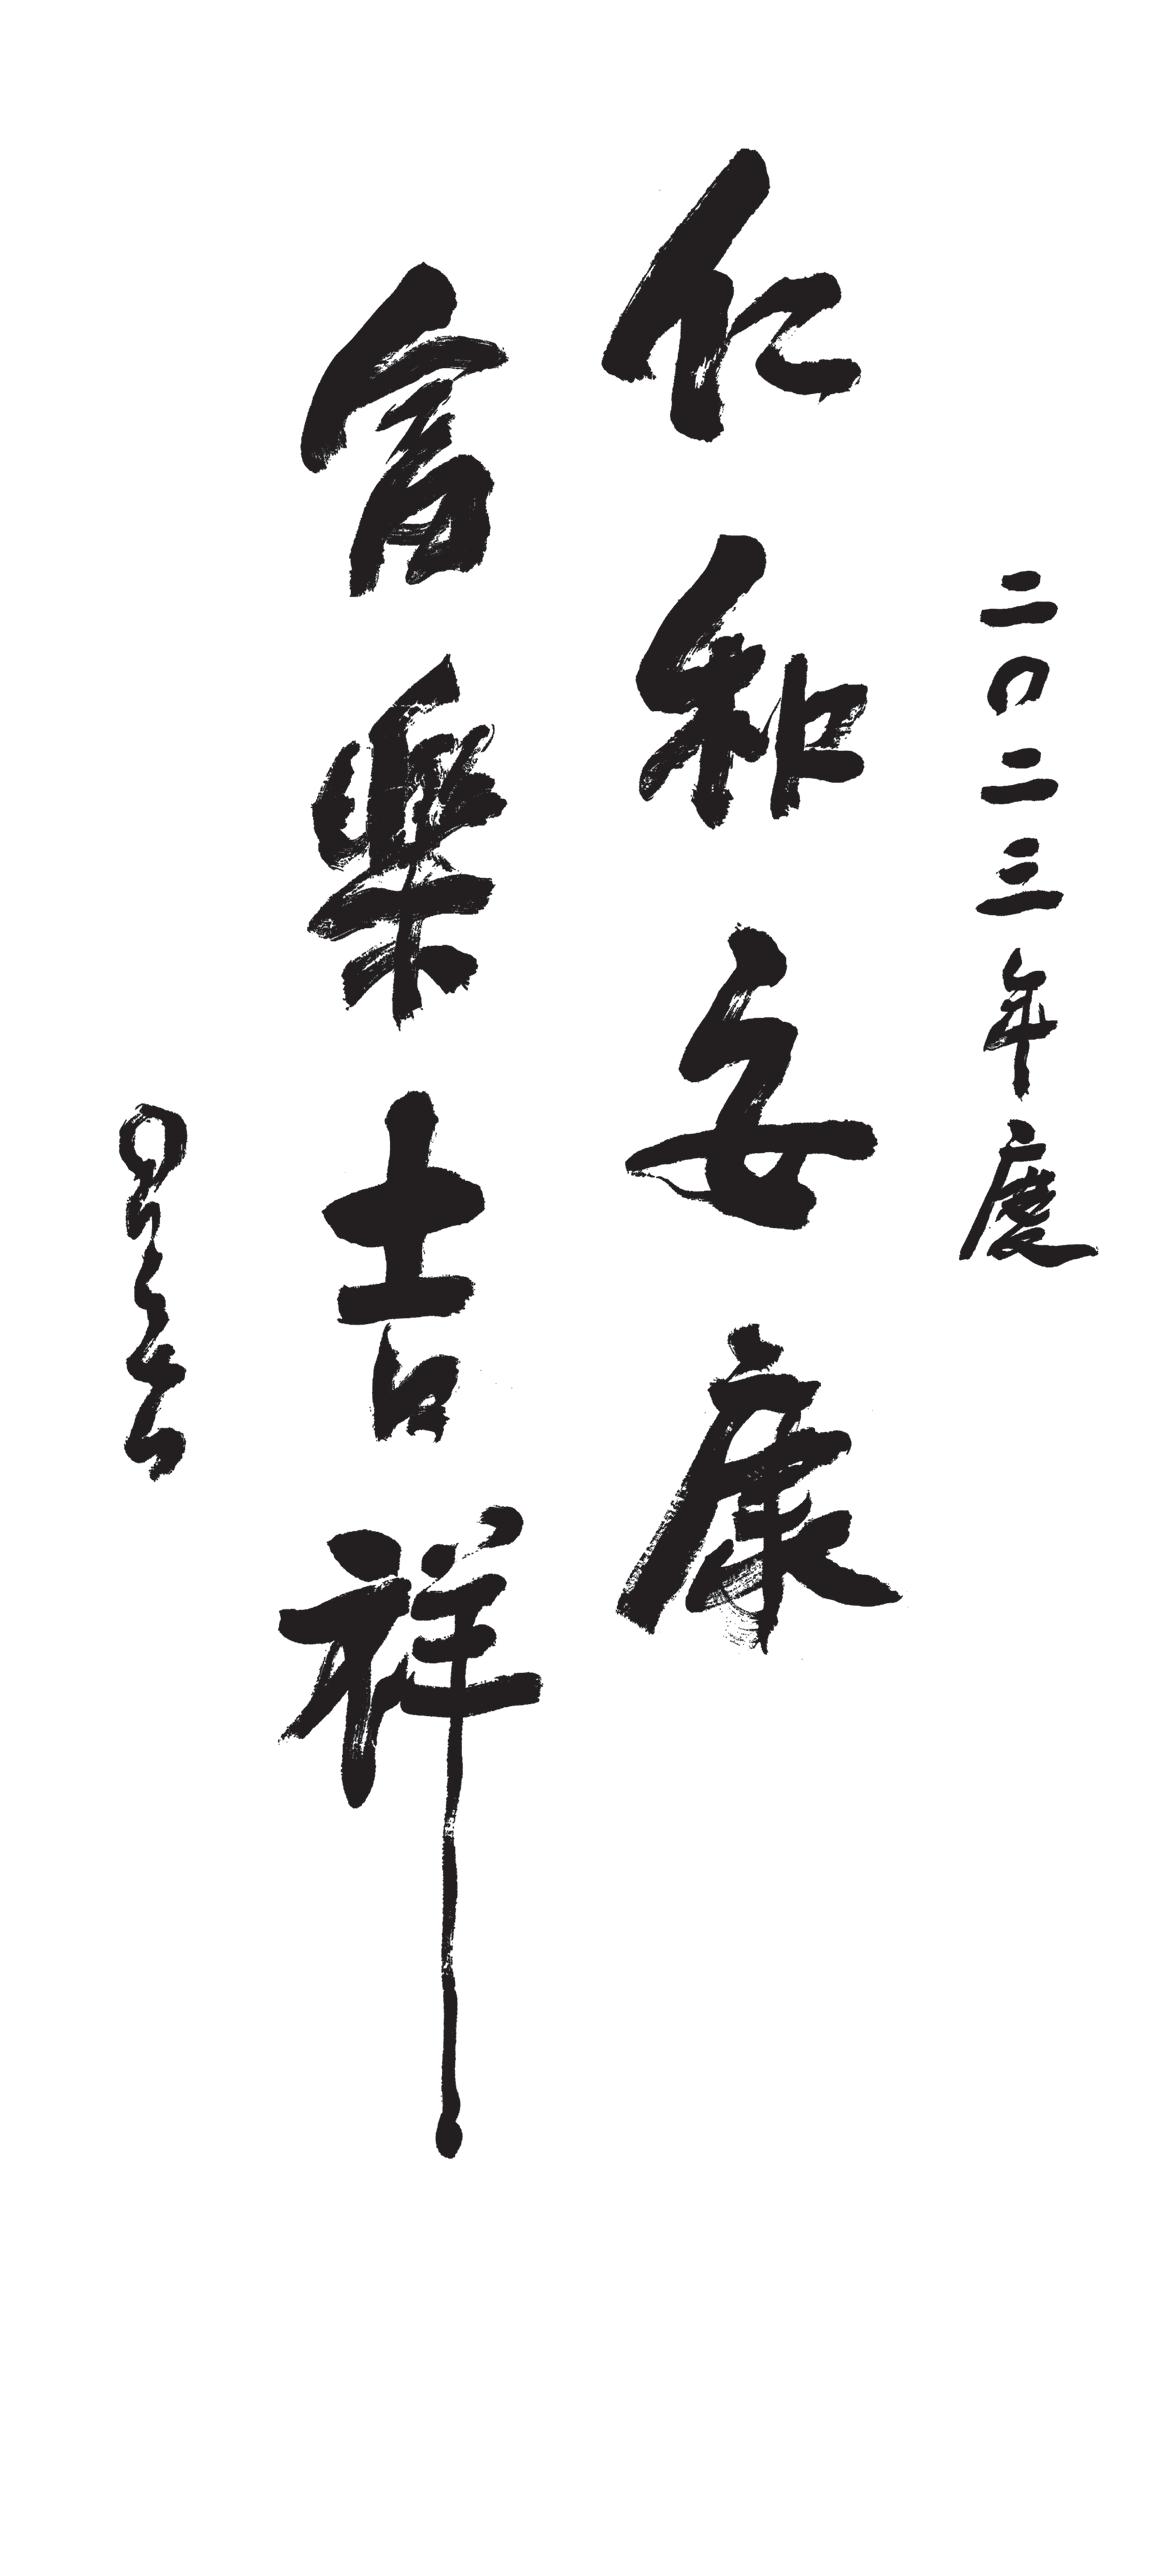 二〇二三年度
仁和安康
富樂吉祥